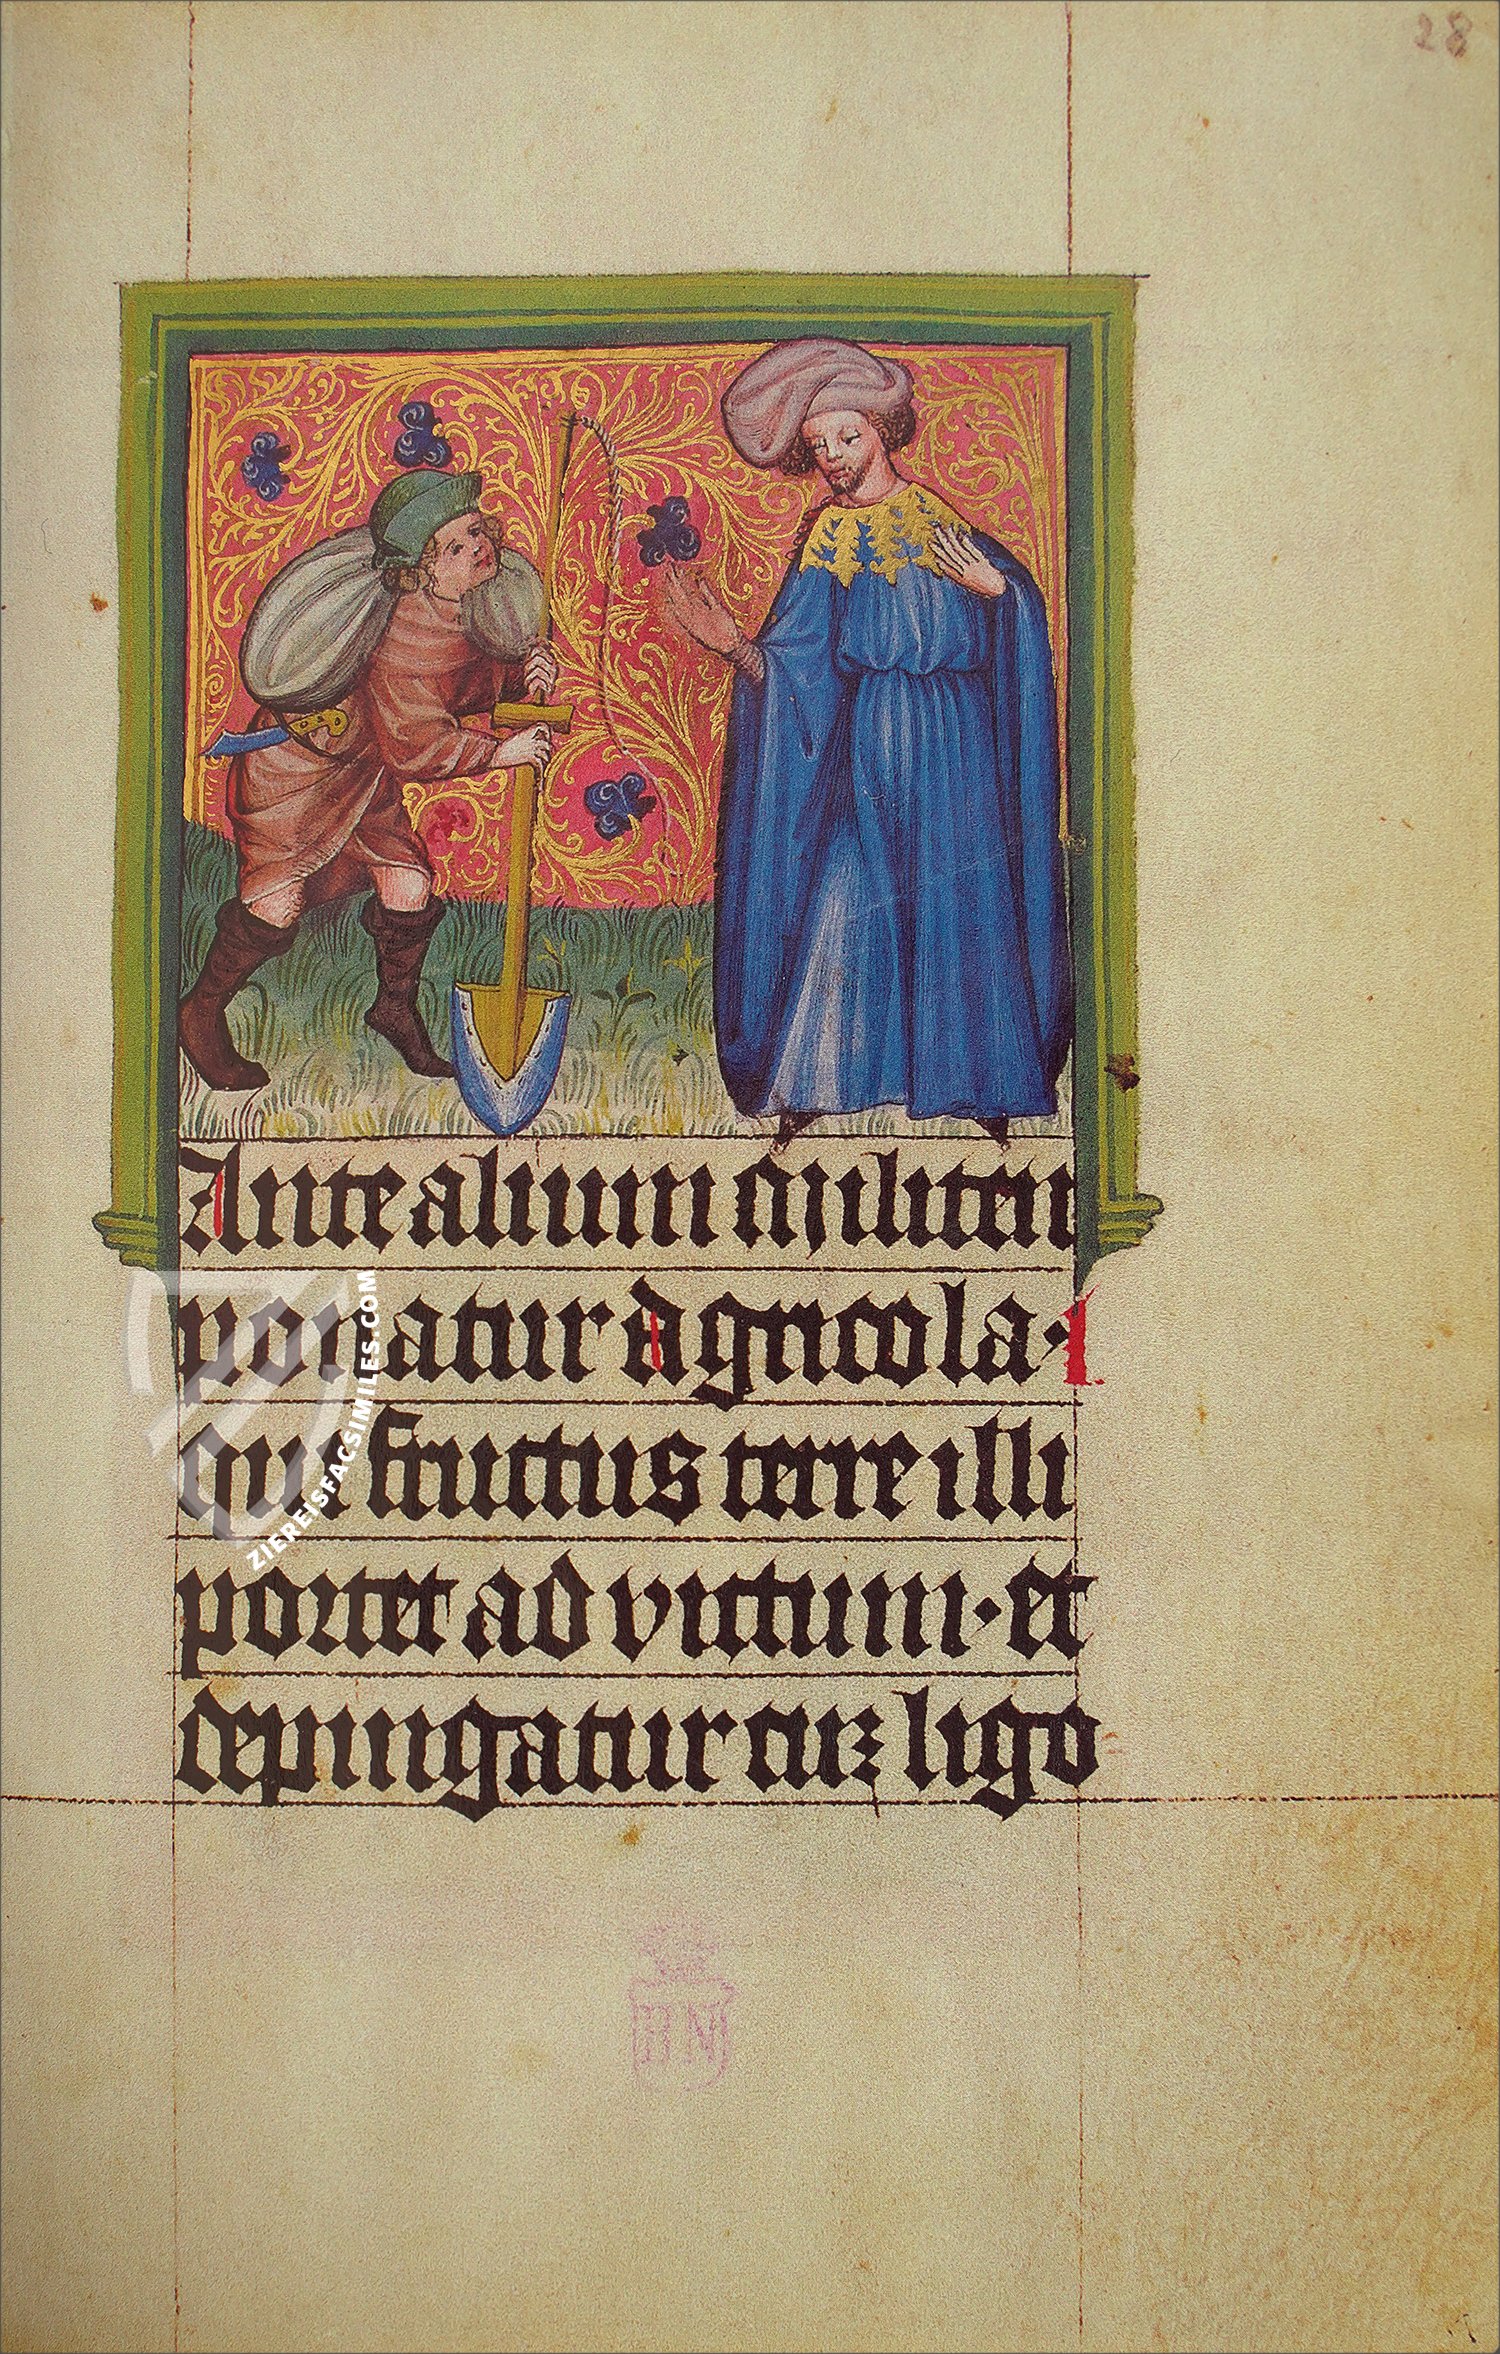 28
Ante alium Militem
ponatur Agricola · I.
qui fructus terre illi
portet ad victum · et
depingatur cuz ligo
ZIEREISFACSIMILES.COM
BN